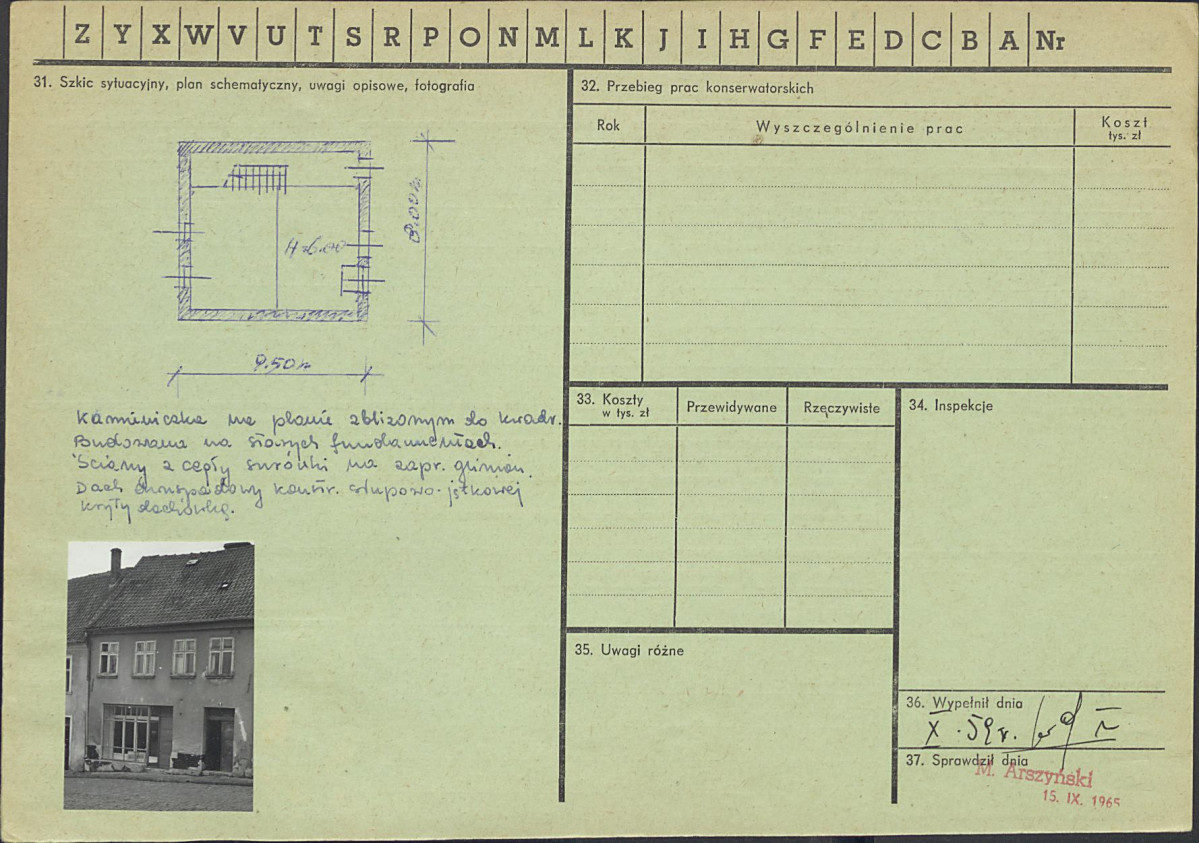 Z Y X W V U T S R P O N M L K J I H G F E D C B A Nr
31. Szkic sytuacyjny, plan schematyczny, uwagi opisowe, fotografia
8.00 m
9.50 m
Kamieniczka na planie zbliżonym do kwadr.
Budowana na starych fundamentach.
Ściany z cegły surówki na zapr. glinian.
Dach dwuspadowy konstr. słupowo-jętkowej
kryty dachówką.
32. Przebieg prac konserwatorskich
Rok Wyszczególnienie prac Koszt
tys. zł
33. Koszty
w tys. zł
Przewidywane Rzęczywiste
34. Inspekcje
35. Uwagi różne
36. Wypełnił dnia
X . 59 r.
37. Sprawdził dnia
M. Arszyński
15. IX. 1965